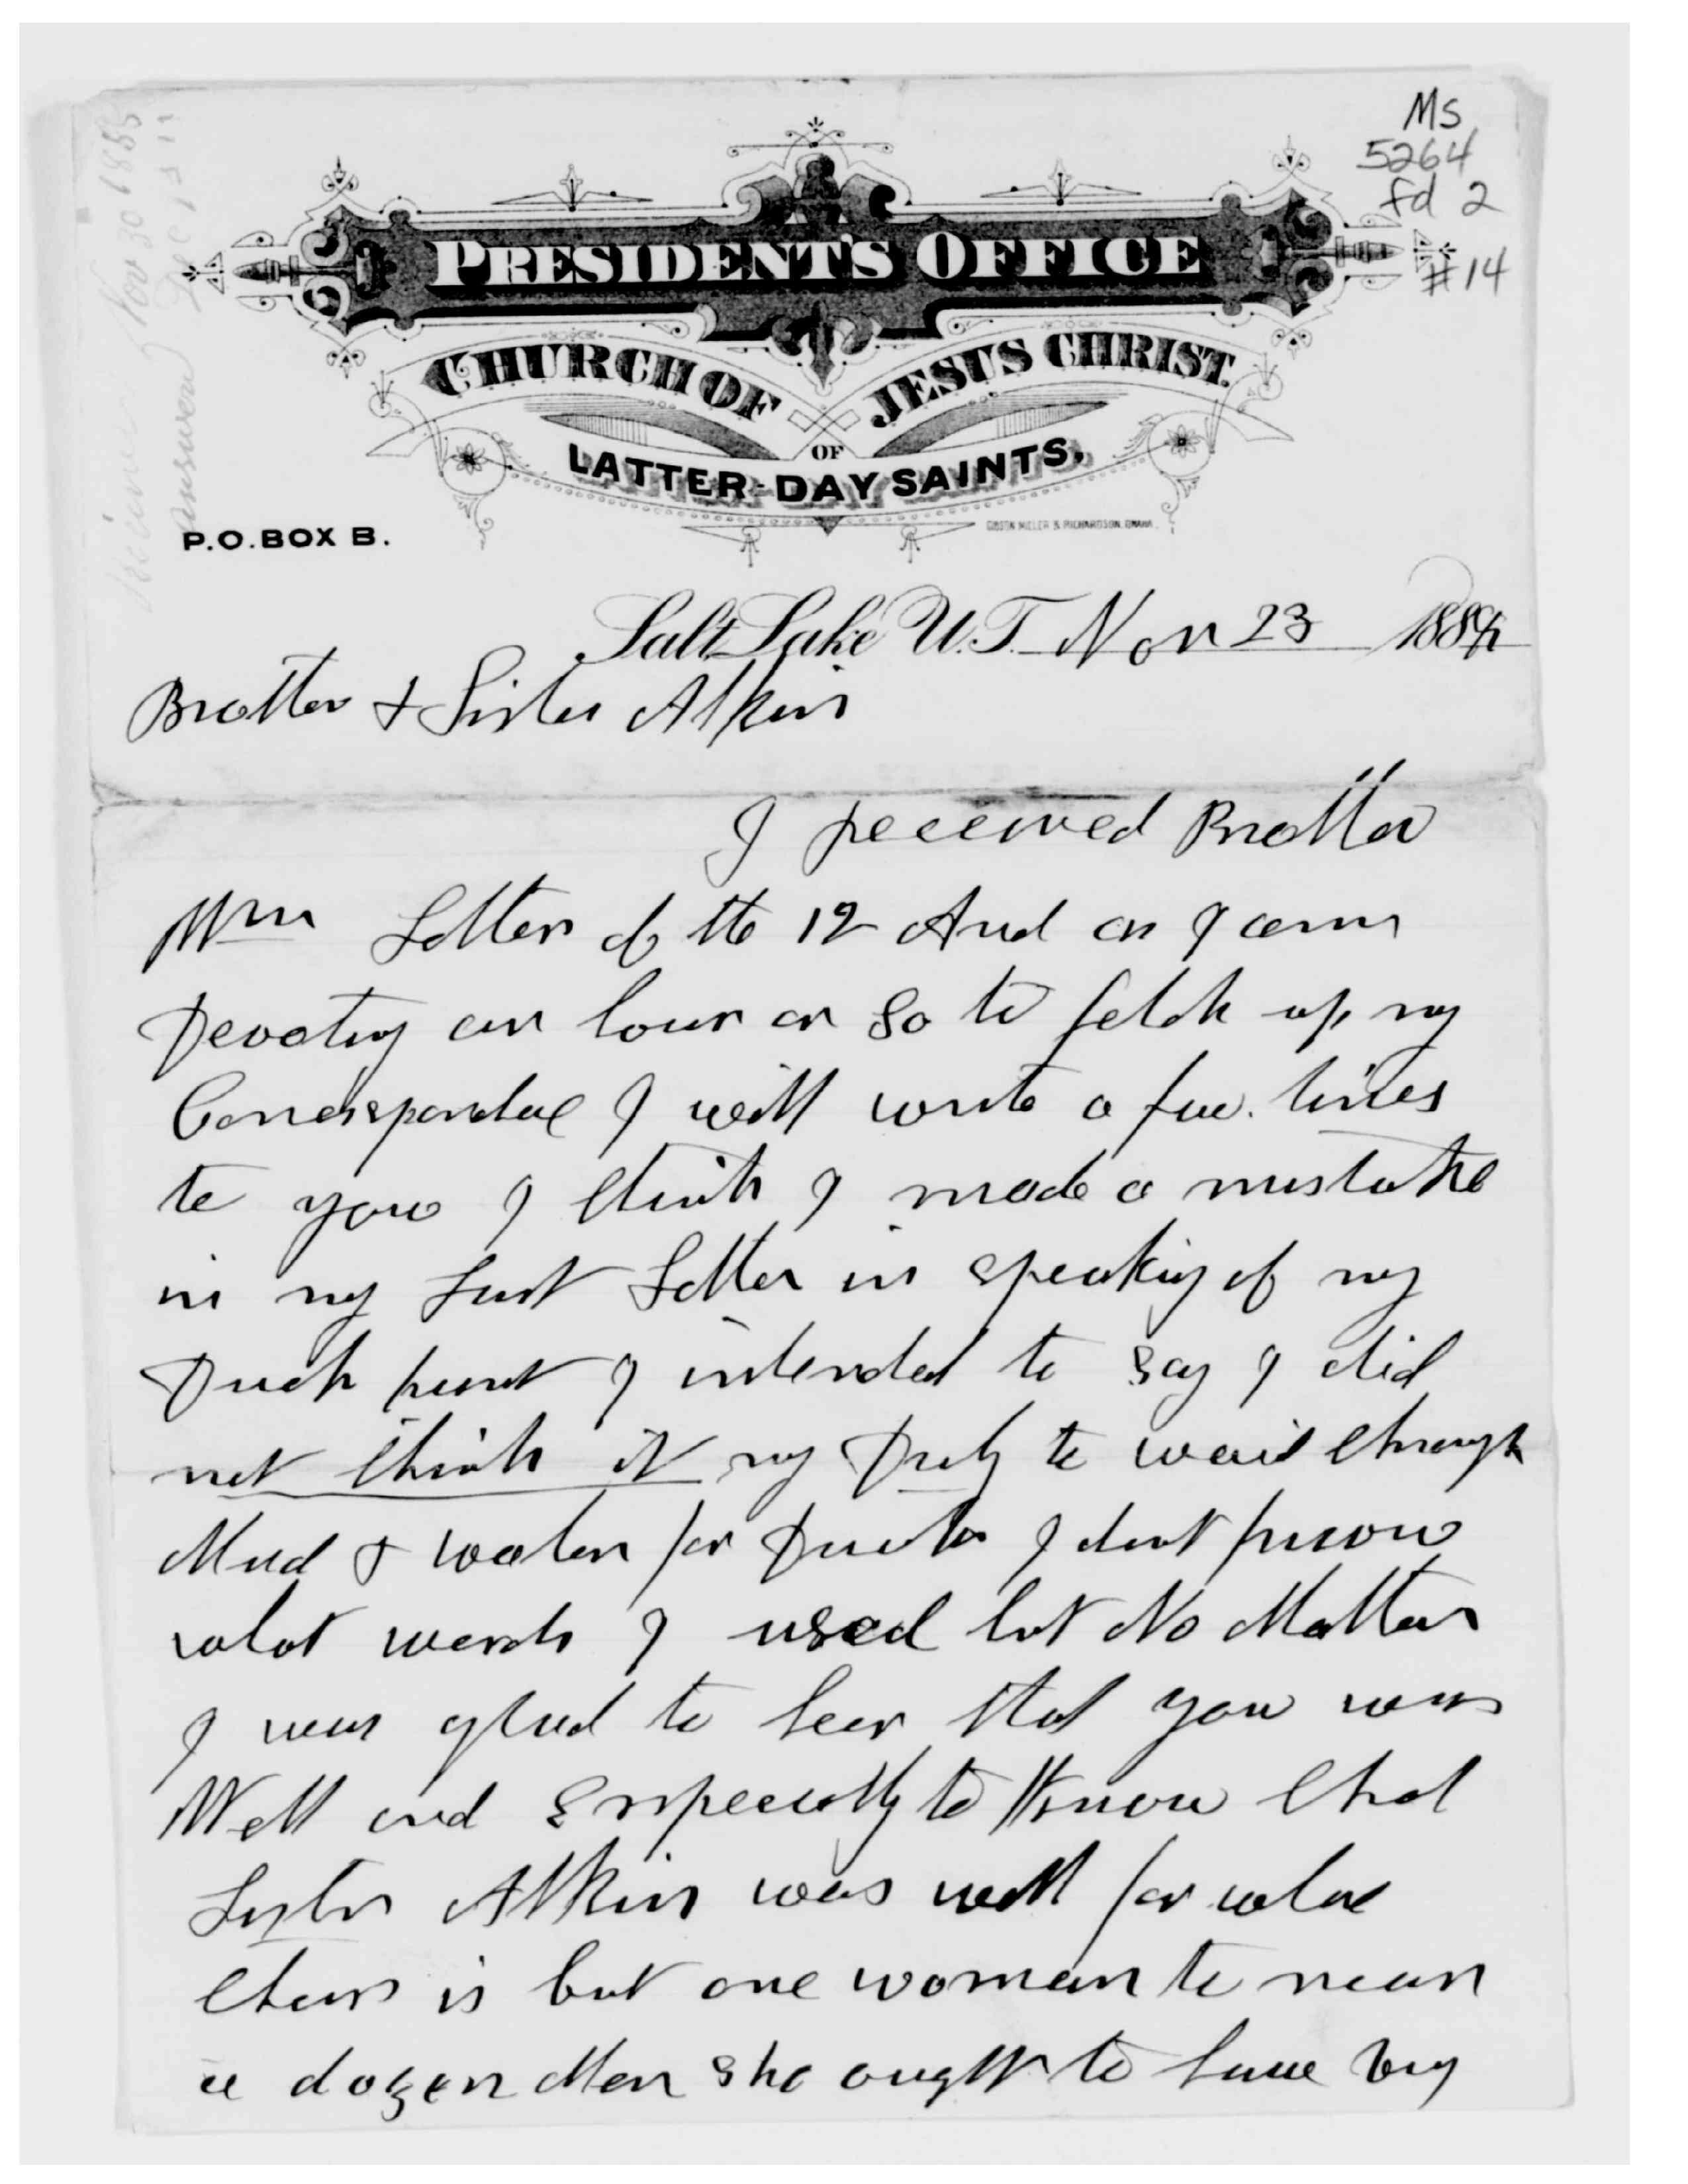 Ms
5264
fd 2
#14
Received Nov 30 1885
Answered Dec
PRESIDENT'S OFFICE
CHURCH OF JESUS CHRIST
OF
LATTER-DAY SAINTS.
GIBSON MILLER & RICHARDSON, OMAHA.
P.O. BOX B.
Salt Lake U.T. Nov 23 188
Brother & Sister Atkin
I received Brother
Wm Letter of the 12 And as I am
Devoting an hour or so to fetch up my
Correspondae I will write a few lines
to you I think I made a mistake
in my Last Letter in speaking of my
Duck hunt I intended to say I did
not think it my Duty to waid through
Mud & water for Ducks I dont know
what words I used but No Matter
I was glad to hear that you was
Well and Espececially to Know that
Sister Atkin was well for whare
thare is but one woman to near
a dozen Men She ought to have big